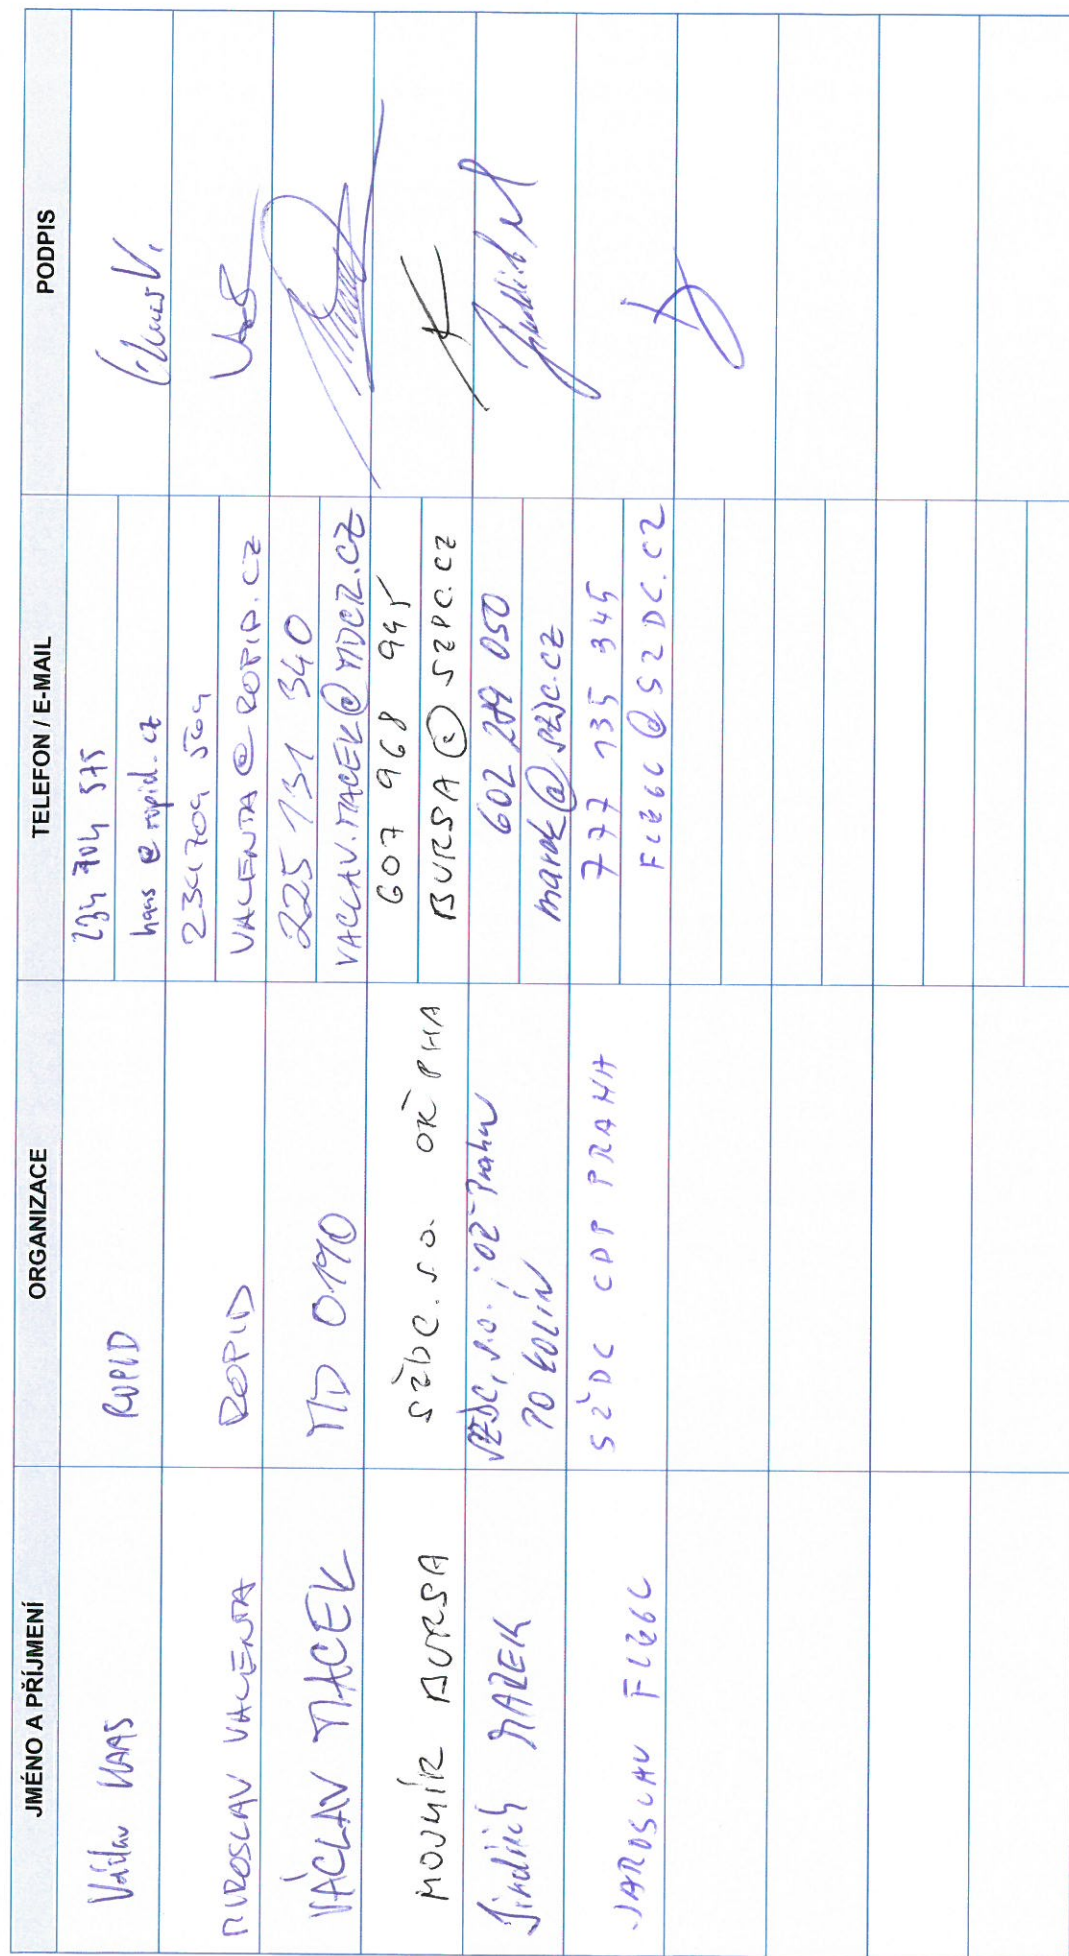 JMÉNO A PŘÍJMENÍ ORGANIZACE TELEFON / E-MAIL PODPIS
Václav HAAS ROPID 234 704 575
haas@ropid.cz
MIROSLAV VALENTA ROPID 234704504
VALENTA@ROPID.CZ
VÁCLAV MACEK MD 0190 225 131 340
VACLAV.MACEK@MDCR.CZ
MOJMÍR BURSA SŽDC. s.o. OŘ PHA 607 968 995
BURSA@SZDC.CZ
Jindřich MAREK SŽDC, s.o., OŘ Praha 602 289 050
PO KOLÍN marek@szdc.cz
JAROSLAV SŽDC CDP PRAHA 777 135 345
@SZDC.CZ